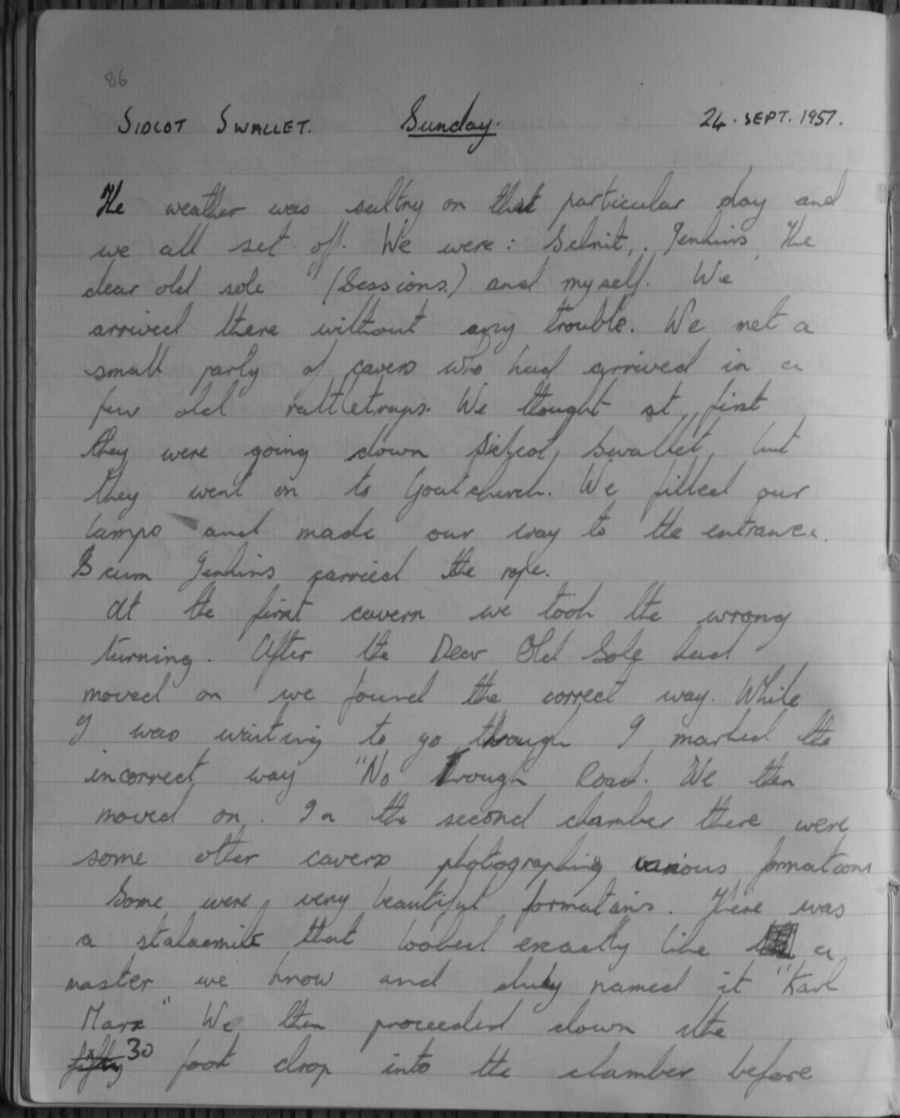 86
SIDCOT SWALLET. Sunday. 24. SEPT. 1957.
The weather was sultry on that particular day and
we all set off. We were: Selnit, Jenkins, the
dear old sole (Sessions) and myself. We
arrived there without any trouble. We met a
small party of cavers who had arrived in a
few old rattletraps. We thought at first
they were going down Sidcot Swallet, but
they went on to Goatchurch. We filled our
lamps and made our way to the entrance.
Scum Jenkins carried the rope.
At the first cavern we took the wrong
turning. After the Dear Old Sole had
moved on we found the correct way. While
I was waiting to go through I marked the
incorrect way "No Through Road. We then
moved on. In the second chamber there were
some other cavers photographing various formations
Some were very beautiful formations. There was
a stalacmite that looked exactly like a
master we know and duly named it "Karl
Marx" We then proceeded down the
fifty 30 foot drop into the chamber before